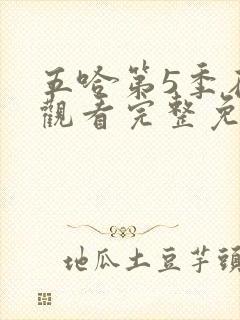 五哈第5季
觀看完整免
地瓜土豆芋頭